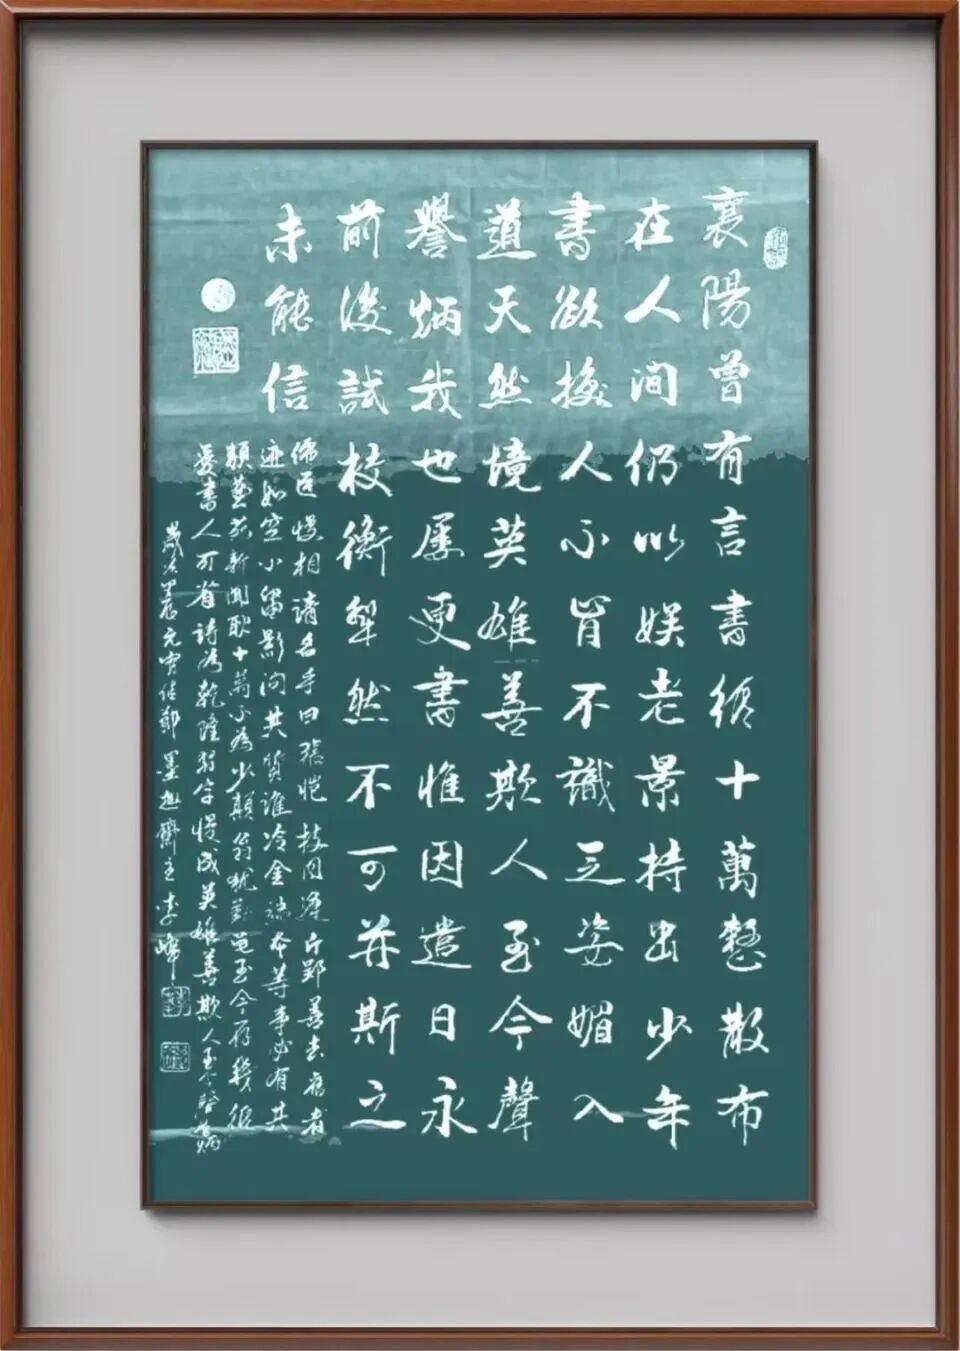 襄陽曾有言書紙十萬整散布
在人間仍以娛老景持出少年
書欲換人亦肯不識王姿媚入
道天然境英雄善欺人至今聲
譽炳我也屢更書惟因遣日永
前後試校衡犁然不可並斯之
未能信
儒匠慢相請名手曰張愷技同逢斤郢善去舊者
迹如空小留影問其質誰冷金端本等事必有其
類藝苑新聞耿十萬小為少顛翁猶豔至今存幾紙
愛書人可省詩為乾隆翁字慢成英雄善欺人至今聲譽炳
歲次元宵佳節墨齋主李